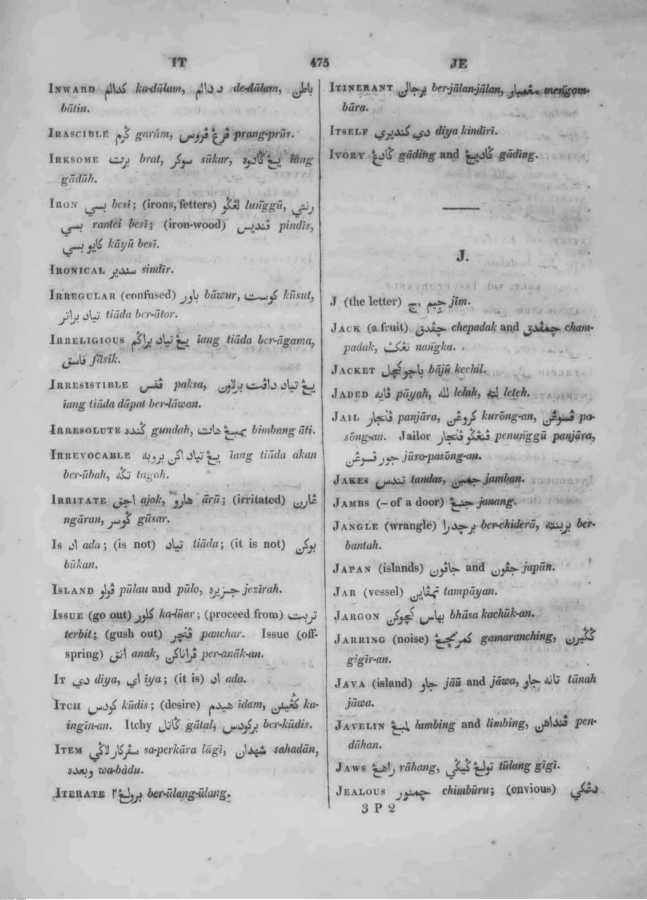 IT 475 JE
INWARD كدالم ka-dālam, د دالم de-dālam, باطن
bātin.
IRASCIBLE گرم garám, prang-prūs.
IRKSOME برت brat, سوكر sūkar, يڠ گادوه iang
gādūh.
IRON بسي besi; (irons, fetters) لڠگو lunggū, رنتي
بسي rantei besi; (iron-wood) ڤنديس pindis,
كايو بسي kāyū besi.
IRONICAL سندير sindir.
IRREGULAR (confused) باور bāwur, كوست kūsut,
تياد براتر tiāda ber-ātor.
IRRELIGIOUS يڠ تياد براگم iang tiāda ber-āgama,
فاسق fāsik.
IRRESISTIBLE ڤقس paksa, يڠ تياد داڤت برلاون
iang tiāda dāpat ber-lāwan.
IRRESOLUTE گنده gundah, بمبڠ هات bimbang āti.
IRREVOCABLE يڠ تياد اكن بروبه iang tiāda akan
ber-ūbah, تگه tagoh.
IRRITATE اجق ajok, هارو ārū; (irritated) ڠارن
ngāran, گوسر gūsar.
IS اد ada; (is not) تياد tiāda; (it is not) بوكن
būkan.
ISLAND ڤولو pūlau and pūlo, جزيره jezīrah.
ISSUE (go out) كلور ka-lūar; (proceed from) تربت
terbit; (gush out) ڤنچر panchar. Issue (off-
spring) انق anak, ڤراناكن per-anāk-an.
IT دي diya, اي iya; (it is) اد ada.
ITCH كودس kūdis; (desire) هيدم īdam, كاڠينن ka-
ingin-an. Itchy گاتل gātal, بركودس ber-kūdis.
ITEM سڤركار لاگي sa-perkāra lāgi, شهدان sahadān,
وبعده wa-bādu.
ITERATE برولڠ٢ ber-ūlang-ūlang.
ITINERANT برجالن ber-jālan-jālan, مڠمبار mengom-
bāra.
ITSELF دي كنديري diya kindīri.
IVORY گادڠ gāding and گاديڠ gāding.
J.
J (the letter) ج, جيم jīm.
JACK (a fruit) چڤدق chepadak and چمڤدق cham-
padak, نڠك nangka.
JACKET باجو كچل bājū kechil.
JADED ڤايه pāyah, لله lelah, لته leteh.
JAIL ڤنجار panjāra, كروڠن kurōng-an, ڤسوڠن pa-
sōng-an. Jailor ڤنڠگو ڤنجار penunggū panjāra,
جور ڤسوڠن jūro-pasōng-an.
JAKES تندس tandas, جمبن jamban.
JAMBS (– of a door) جنڠ janang.
JANGLE (wrangle) برچدرا ber-chiderā, بربنته ber-
bantah.
JAPAN (islands) جڤون and جاڤون japūn.
JAR (vessel) تمڤاين tampāyan.
JARGON بهاس كچوكن bhāsa kachūk-an.
JARRING (noise) گمرنچڠ gamaranching, گگيرن
gigīr-an.
JAVA (island) جاو jāū and jāwa, تانه جاو tānah
jāwa.
JAVELIN لمبڠ lambing and limbing, ڤنداهن pen-
dāhan.
JAWS راهڠ rāhang, تولڠ گيگي tūlang gigi.
JEALOUS چمبور chimbūru; (envious) دڠكي
3 P 2